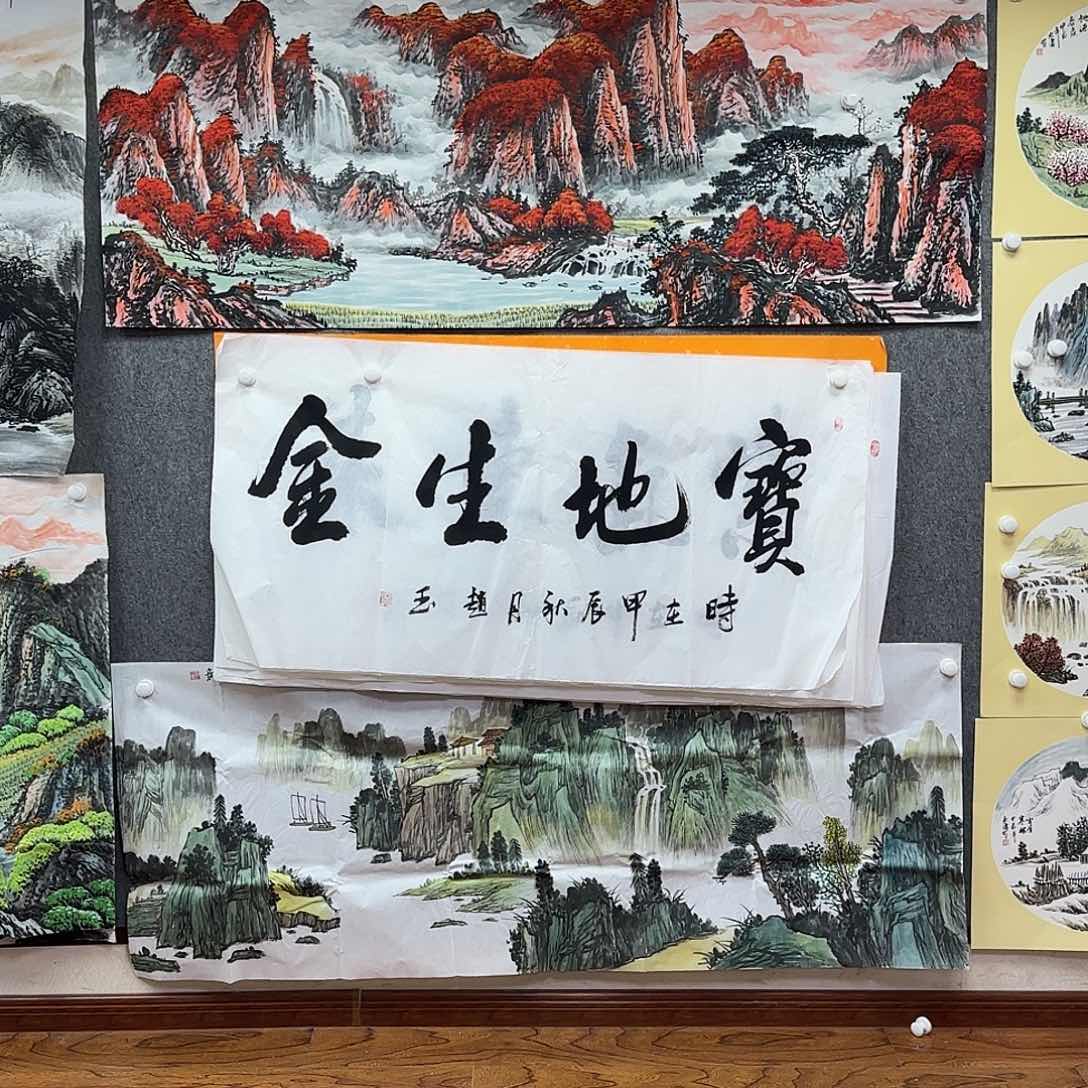 寶地生金
時在甲辰秋月趙玉